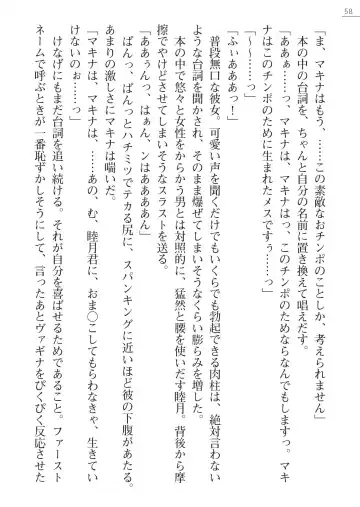 58
「ま、マキナはもう、……この素敵なおチンポのことしか、考えられません」
本の中の台詞を、ちゃんと自分の名前に置き換えて唱えだす。
「ああぁ……っ、マキナは、マキナはっ、このチンポのためならなんでもしますっ。マキ
ナはこのチンポのために生まれたメスですぅ……っ」
「～～～……っ」
「ふぃあああっ！」
普段無口な彼女。可愛い声を聞くだけでもいくらでも勃起できる肉柱は、絶対言わない
ような台詞を聞かされ、そのまま爆ぜてしまいそうなくらい膨らみを増した。
本の中で悠々と女性をからかう男とは対照的に、猛然と腰を使いだす睦月。背後から摩
擦でやけどさせてしまいそうなスラストを送る。
「ああぅんっ、はぁん、ンはああああん」
ばんっ、ばんっとハチミツでテカる尻に、スパンキングに近いほど彼の下腹があたる。
あまりの激しさにマキナは喘いだ。
「マキナは、マキナは、……あの、む、睦月君に、おま◯こしてもらわなきゃ、生きてい
けないのぉ……っ」
けなげにもまだ台詞を追い続ける。それが自分を喜ばせるためであること。ファースト
ネームで呼ぶときが一番恥ずかしそうにして、言ったあとヴァギナをぴくぴく反応させた